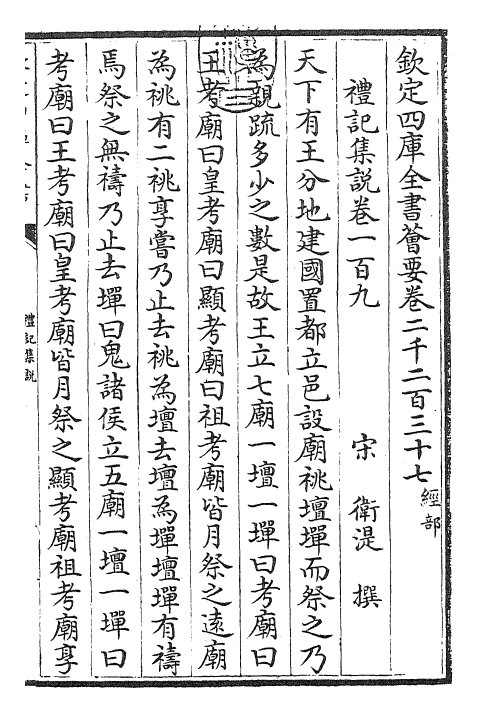 欽定四庫全書薈要卷二千二百三十七經部
禮記集說卷一百九
宋 衛湜 撰
天下有王分地建國置都立邑設廟祧壇墠而祭之乃
為親疏多少之數是故王立七廟一壇一墠曰考廟曰
王考廟曰皇考廟曰顯考廟曰祖考廟皆月祭之遠廟
為祧有二祧享嘗乃止去祧為壇去壇為墠壇墠有禱
焉祭之無禱乃止去墠曰鬼諸侯立五廟一壇一墠曰
考廟曰王考廟曰皇考廟皆月祭之顯考廟祖考廟享
禮記集說